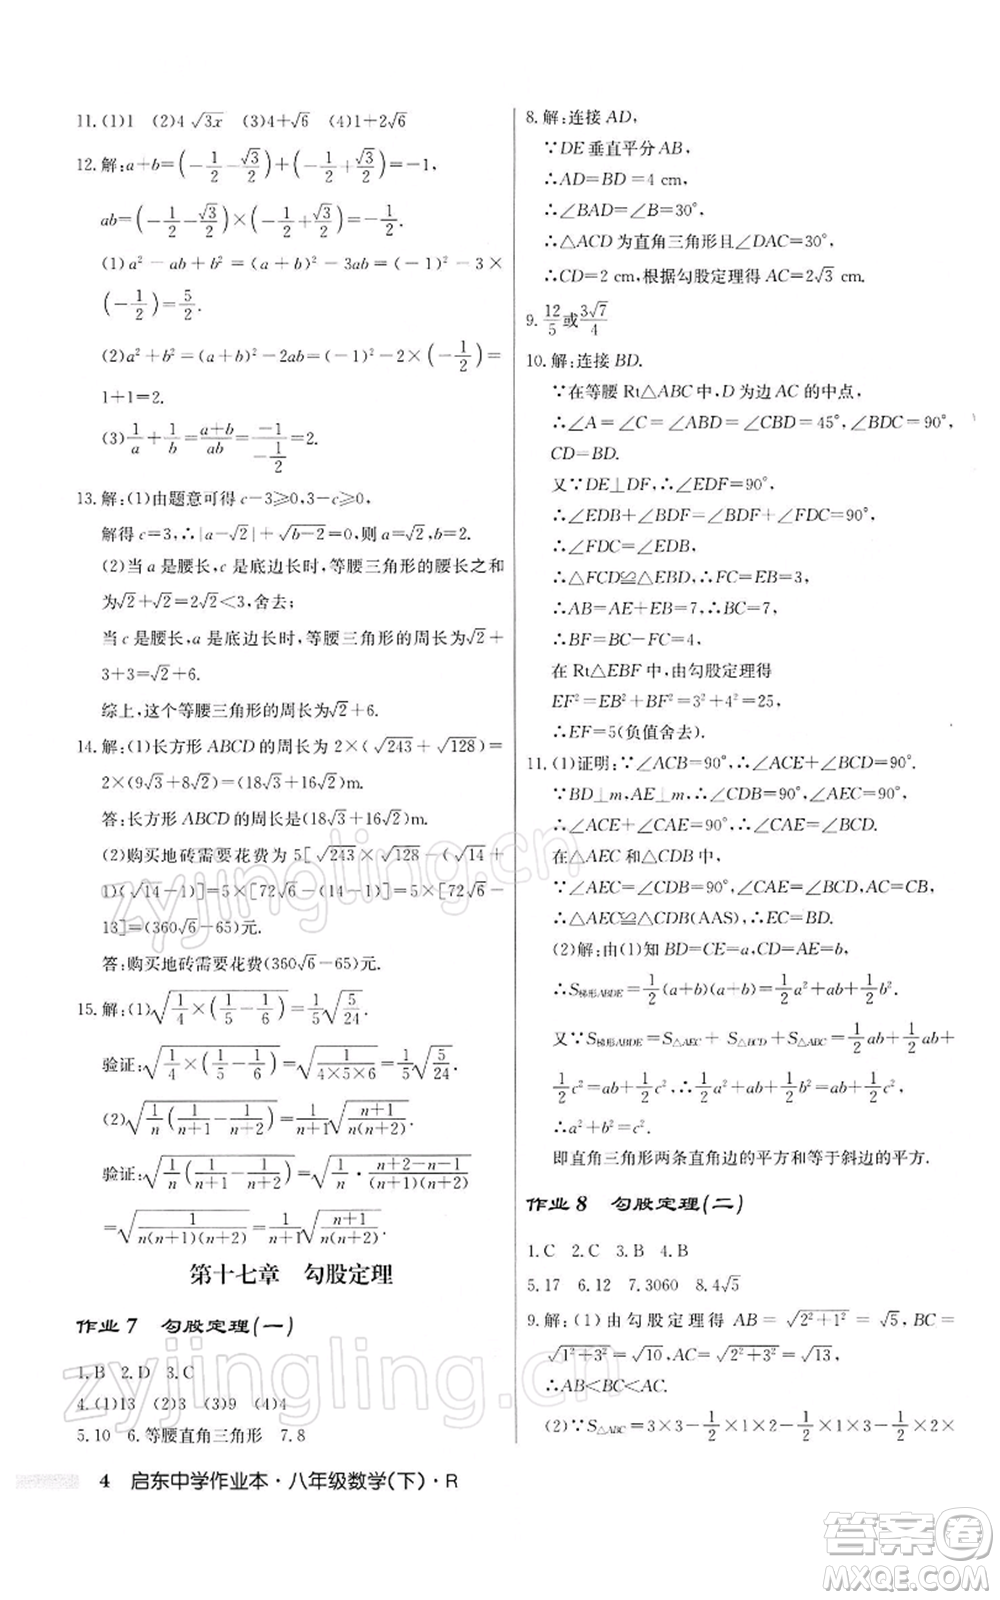 11.(1)1 (2)4√3x (3)4+√6 (4)1+2√6
12.解:a+b=(-1/2-√3/2)+(-1/2+√3/2)=-1,
ab=(-1/2-√3/2)×(-1/2+√3/2)=-1/2.
(1)a²-ab+b²=(a+b)²-3ab=(-1)²-3×
(-1/2)=5/2.
(2)a²+b²=(a+b)²-2ab=(-1)²-2×(-1/2)=
1+1=2.
(3)1/a+1/b=(a+b)/ab=-1/(-1/2)=2.
13.解:(1)由题意可得c-3≥0,3-c≥0,
解得c=3,∴|a-√2|+√(b-2)=0,则a=√2,b=2.
(2)当a是腰长,c是底边长时,等腰三角形的腰长之和
为√2+√2=2√2<3,舍去;
当c是腰长,a是底边长时,等腰三角形的周长为√2+
3+3=√2+6.
综上,这个等腰三角形的周长为√2+6.
14.解:(1)长方形ABCD的周长为2×(√243+√128)=
2×(9√3+8√2)=(18√3+16√2)m.
答:长方形ABCD的周长是(18√3+16√2)m.
(2)购买地砖需要花费为5[√243×√128-(√14+
1)(√14-1)]=5×[72√6-(14-1)]=5×[72√6-
13]=(360√6-65)元.
答:购买地砖需要花费(360√6-65)元.
15.解:(1)√(1/4×(1/5-1/6))=1/5√(5/24).
验证:√(1/4×(1/5-1/6))=√(1/(4×5×6))=1/5√(5/24).
(2)√(1/n(1/(n+1)-1/(n+2)))=1/(n+1)√((n+1)/(n(n+2))).
验证:√(1/n(1/(n+1)-1/(n+2)))=√(1/n·(n+2-n-1)/((n+1)(n+2)))
=√(1/(n(n+1)(n+2)))=1/(n+1)√((n+1)/(n(n+2))).
第十七章 勾股定理
作业7 勾股定理(一)
1.B 2.D 3.C
4.(1)13 (2)3 (3)9 (4)4
5.10 6.等腰直角三角形 7.8
8.解:连接AD,
∵DE垂直平分AB,
∴AD=BD=4 cm,
∴∠BAD=∠B=30°,
∴△ACD为直角三角形且∠DAC=30°,
∴CD=2 cm,根据勾股定理得AC=2√3 cm.
9.12/5或3√7/4
10.解:连接BD.
∵在等腰Rt△ABC中,D为边AC的中点,
∴∠A=∠C=∠ABD=∠CBD=45°,∠BDC=90°,
CD=BD.
又∵DE⊥DF,∴∠EDF=90°,
∴∠EDB+∠BDF=∠BDF+∠FDC=90°,
∴∠FDC=∠EDB,
∴△FCD≌△EBD,∴FC=EB=3,
∴AB=AE+EB=7,∴BC=7,
∴BF=BC-FC=4,
在Rt△EBF中,由勾股定理得
EF²=EB²+BF²=3²+4²=25,
∴EF=5(负值舍去).
11.(1)证明:∵∠ACB=90°,∴∠ACE+∠BCD=90°.
∵BD⊥m,AE⊥m,∴∠CDB=90°,∠AEC=90°,
∴∠ACE+∠CAE=90°,∴∠CAE=∠BCD.
在△AEC和△CDB中,
∵∠AEC=∠CDB=90°,∠CAE=∠BCD,AC=BC,
∴△AEC≌△CDB(AAS),∴EC=BD.
(2)解:由(1)知BD=CE=a,CD=AE=b,
∴S梯形ABDE=1/2(a+b)(a+b)=1/2a²+ab+1/2b².
又∵S梯形ABDE=S△AEC+S△BCD+S△ABC=1/2ab+1/2ab+
1/2c²=ab+1/2c²,∴1/2a²+ab+1/2b²=ab+1/2c²,
∴a²+b²=c².
即直角三角形两条直角边的平方和等于斜边的平方.
作业8 勾股定理(二)
1.C 2.C 3.B 4.B
5.17 6.12 7.3060 8.4√5
9.解:(1)由勾股定理得AB=√(2²+1²)=√5,BC=
√(1²+3²)=√10,AC=√(2²+3²)=√13,
∴AB<BC<AC.
(2)∵S△ABC=3×3-1/2×2×1-1/2×1×3-1/2×2×
4 启东中学作业本·八年级数学(下)·R
zyjingling.cn
zyjingling.cn
答案圈
MXQE.COM